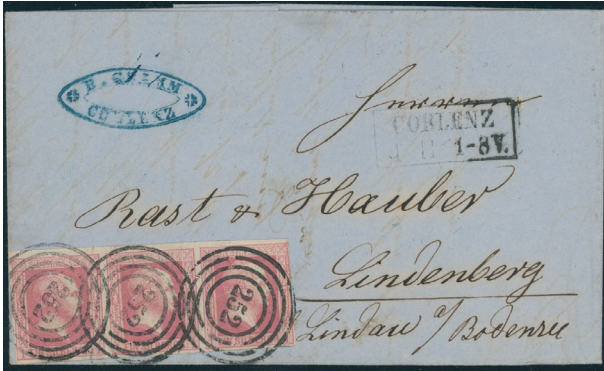 COBLENZ
Herren
COBLENZ
11 1-8V.
Rast & Hauber
Lindenberg
Lindau a/ Bodensee
252
252
252